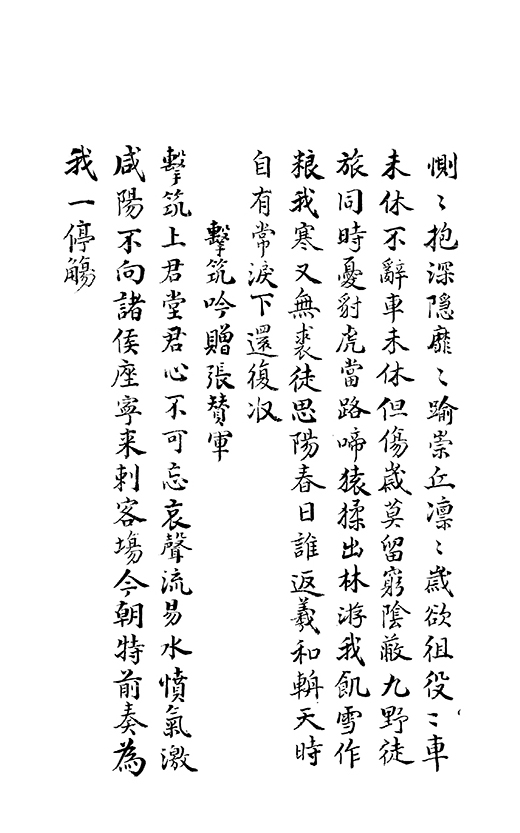 惻〻抱深隱靡〻踰崇丘凛〻歲欲徂役〻車
未休不辭車未休但傷歲莫留窮陰蔽九野徒
旅同時憂豺虎當路啼猿猱出林游我飢雪作
粮我寒又無裘徒思陽春日誰返羲和輈天時
自有常淚下還復收
擊筑吟贈張贊軍
擊筑上君堂君心不可忘哀聲流易水憤氣激
咸陽不向諸侯座寧来刺客場今朝特前奏為
我一停觴